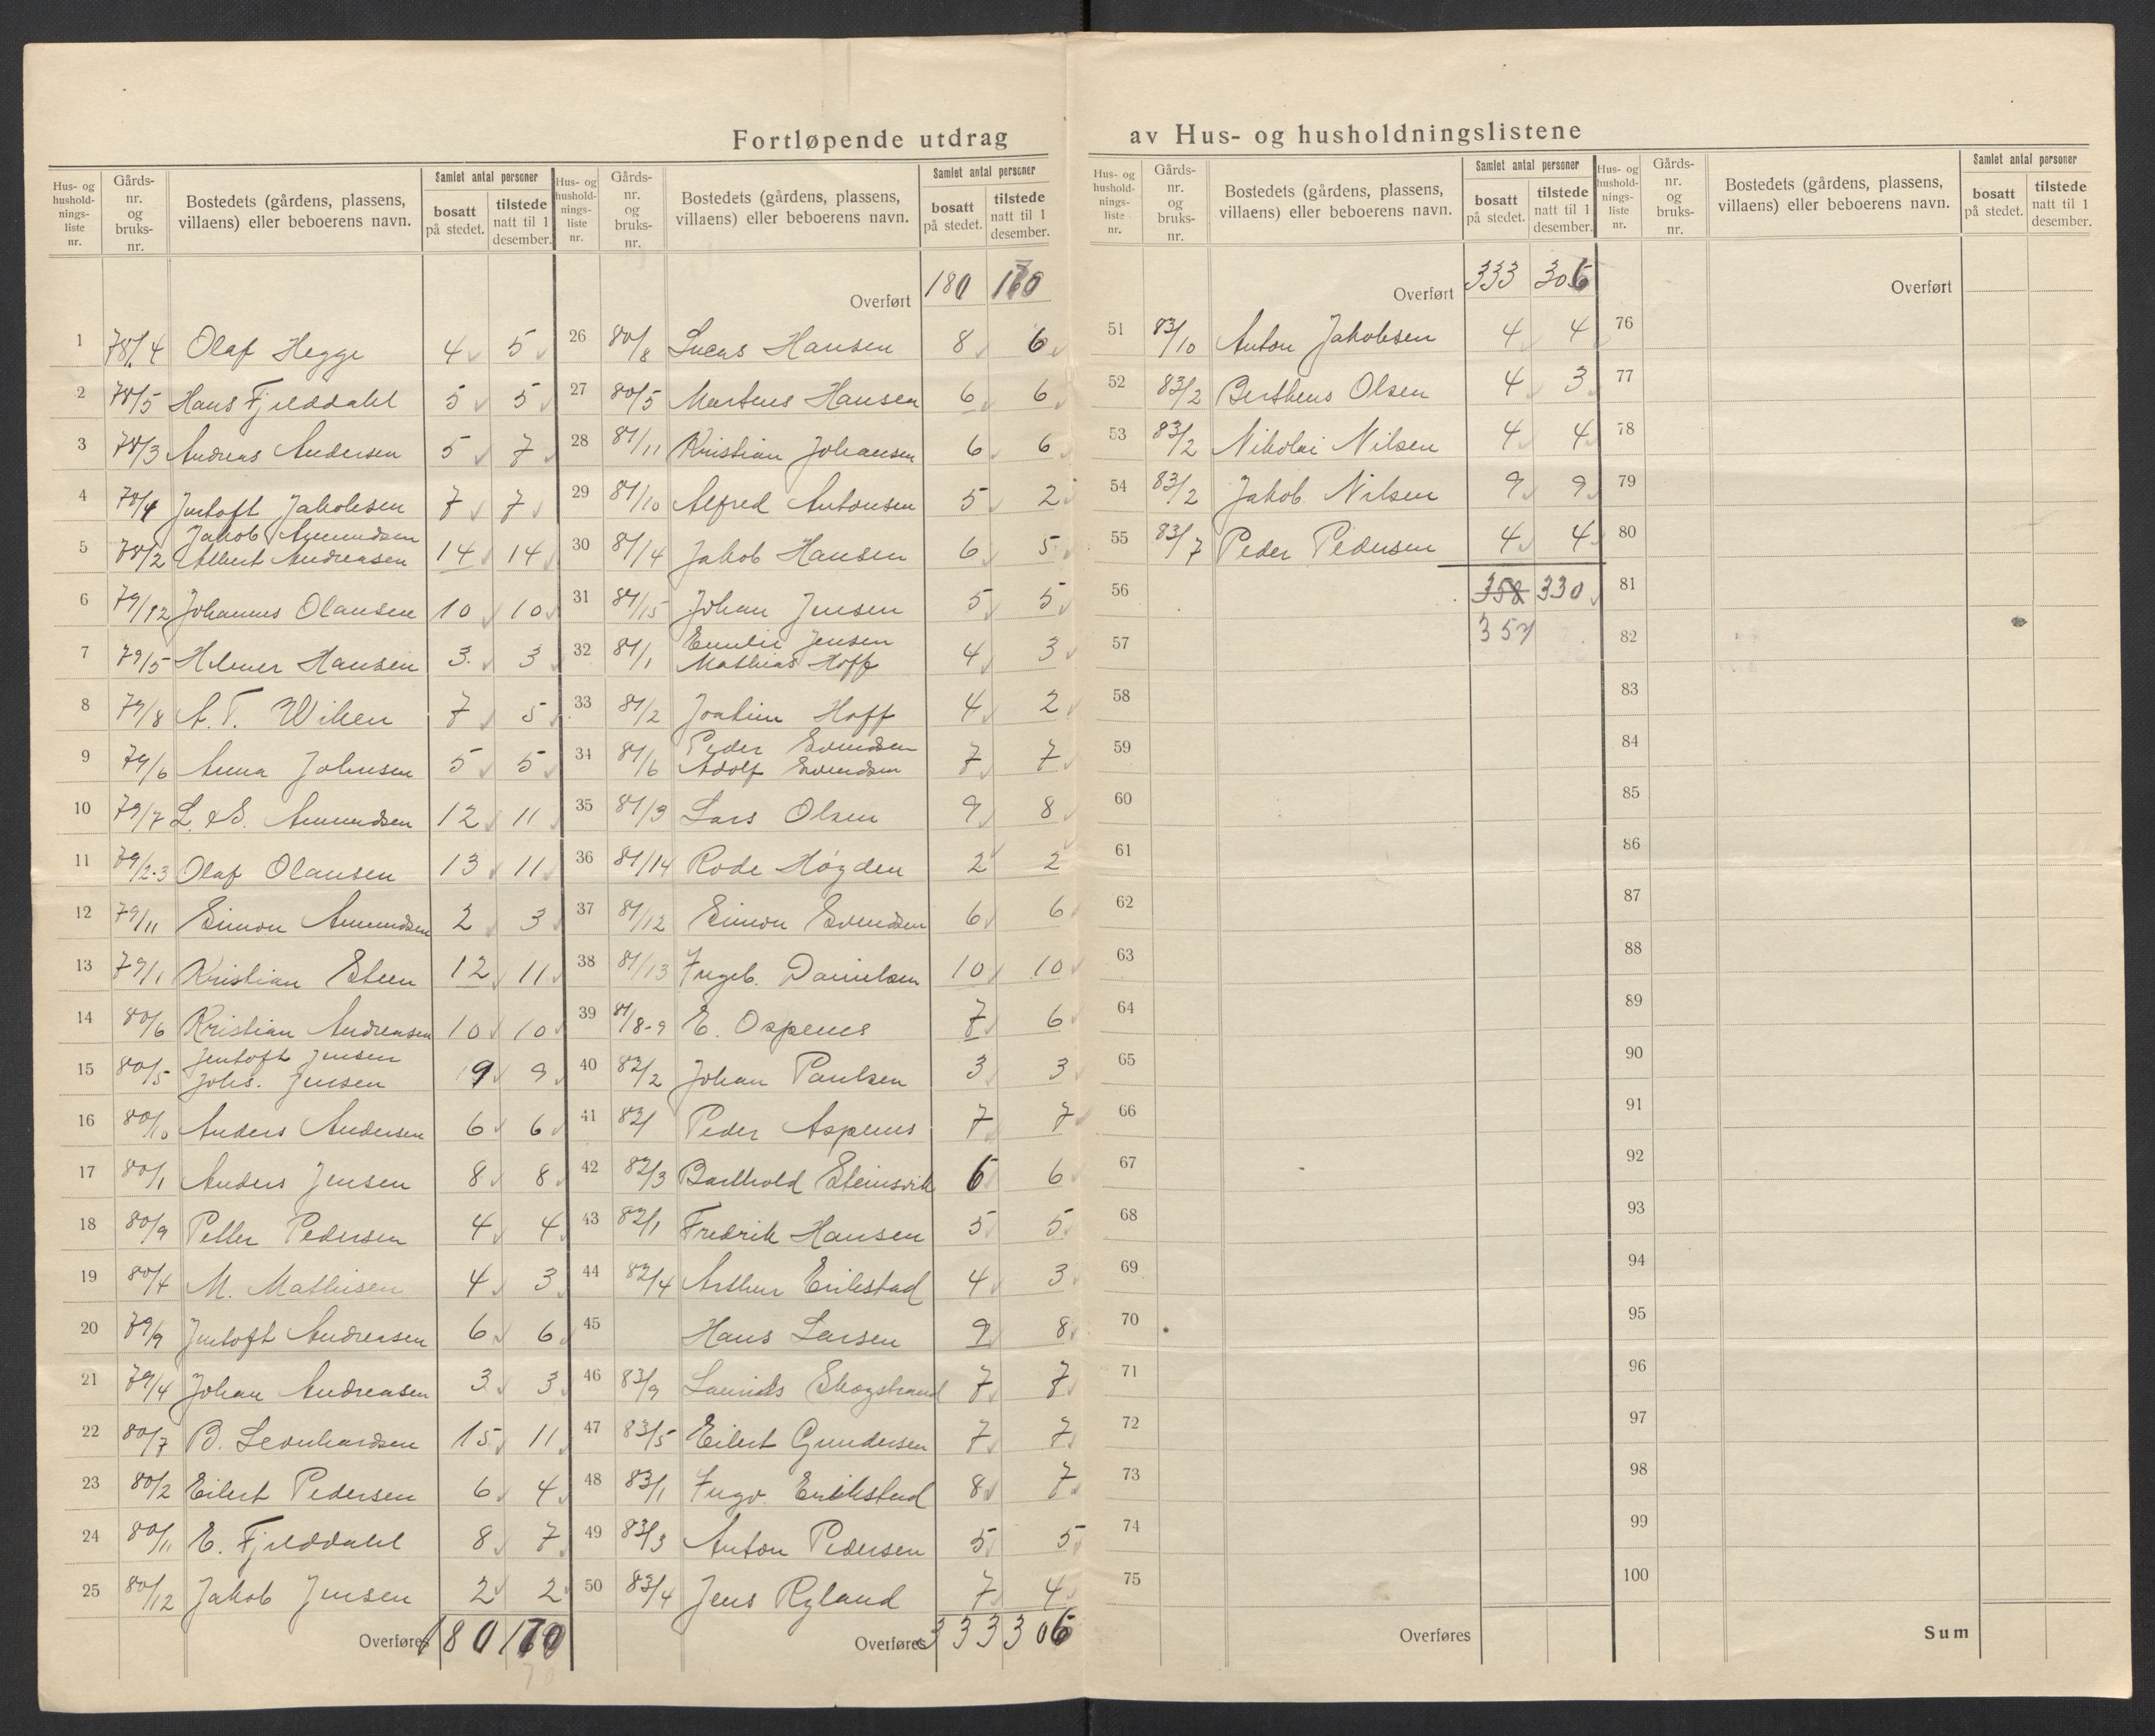 Fortløpende utdrag av Hus- og husholdningslistene
Hus- og husholdnings-liste nr. | Gårds-nr. og bruks-nr. | Bostedets (gårdens, plassens, villaens) eller beboerens navn. | Samlet antal personer | bosatt på stedet. | tilstede natt til 1 desember.
1 78/4 Olaf Hegge 4 5
2 78/5 Hans Fjelddahl 5 5
3 78/3 Andreas Andersen 5 7
4 78/4 Jentoft Jakobsen 7 7
5 78/2 Jakob Amundsen
Albert Andreasen 14 14
6 79/12 Johannes Olausen 10 10
7 79/5 Helmer Hansen 3 3
8 79/8 A. T. Wiken 7 5
9 79/6 Anna Johnsen 5 5
10 79/7 L. & S. Amundsen 12 11
11 79/2-3 Olaf Olausen 13 11
12 79/11 Simon Amundsen 2 3
13 79/1 Kristian Steen 12 11
14 80/6 Kristian Andreasen 10 10
15 80/5 Jentoft Jensen
Johs. Jensen 9 9
16 80/10 Anders Andersen 6 6
17 80/1 Anders Jensen 8 8
18 80/9 Petter Pedersen 4 4
19 80/4 M. Mathisen 4 3
20 79/9 Jentoft Andreasen 6 6
21 79/4 Johan Andreasen 3 3
22 80/7 B. Leonhardsen 15 11
23 80/2 Eilert Pedersen 6 4
24 80/11 E. Fjelddahl 8 7
25 80/12 Jakob Jensen 2 2
Overføres 180 170
70
Hus- og husholdnings-liste nr. | Gårds-nr. og bruks-nr. | Bostedets (gårdens, plassens, villaens) eller beboerens navn. | Samlet antal personer | bosatt på stedet. | tilstede natt til 1 desember.
Overført 180 170
26 80/8 Lucas Hansen 8 6
27 80/5 Martens Hansen 6 6
28 81/11 Kristian Johansen 6 6
29 81/10 Alfred Antonsen 5 2
30 81/4 Jakob Hansen 6 5
31 81/15 Johan Jensen 5 5
32 81/1 Emilie Jensen
Mathias Hoff 4 3
33 81/2 Joakim Hoff 4 2
34 81/6 Peder Svendsen
Adolf Svendsen 7 7
35 81/3 Lars Olsen 9 8
36 81/14 Rode Høgden 2 2
37 81/12 Simon Svendsen 6 6
38 81/13 Ingeb. Danielsen 10 10
39 81/8-9 E. Ospenes 7 6
40 82/2 Johan Paulsen 3 3
41 82/1 Peder Aspenes 7 7
42 82/3 Barthold Steinsvik 6 6
43 82/1 Fredrik Hansen 5 5
44 82/4 Arthur Erikstad 4 3
45 Hans Larsen 9 8
46 83/9 Laurids Skogstrand 7 7
47 83/5 Eilert Gundersen 7 7
48 83/1 Ingv. Erikstad 8 7
49 83/3 Anton Pedersen 5 5
50 83/4 Jens Ryland 7 4
Overføres 333 306
Hus- og hushold-nings-liste nr. | Gårds-nr. og bruks-nr. | Bostedets (gårdens, plassens, villaens) eller beboerens navn. | Samlet antal personer | bosatt på stedet. | tilstede natt til 1 desember.
Overført 333 306
51 83/10 Anton Jakobsen 4 4
52 83/2 Bertheus Olsen 4 3
53 83/2 Nikolai Nilsen 4 4
54 83/2 Jakob Nilsen 9 9
55 83/7 Peder Pedersen 4 4
56 358 330
57 357
58
59
60
61
62
63
64
65
66
67
68
69
70
71
72
73
74
75
Overføres
Hus- og hushold-nings-liste nr. | Gårds-nr. og bruks-nr. | Bostedets (gårdens, plassens, villaens) eller beboerens navn. | Samlet antal personer | bosatt på stedet. | tilstede natt til 1 desember.
Overført
76
77
78
79
80
81
82
83
84
85
86
87
88
89
90
91
92
93
94
95
96
97
98
99
100
Sum